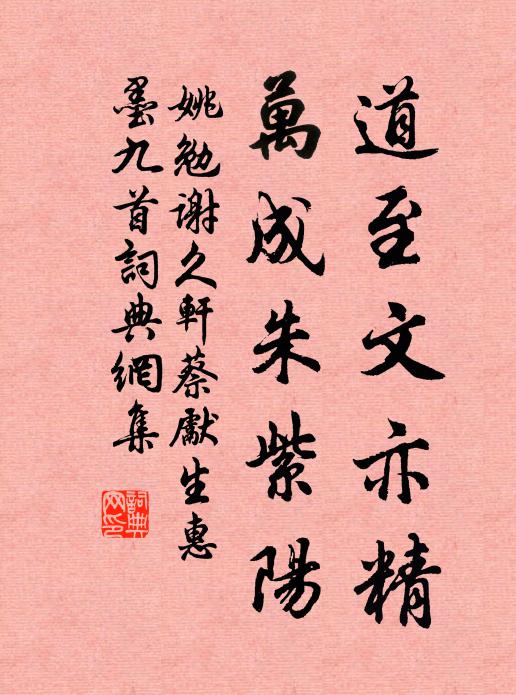 道至文亦精
萬成朱紫陽
姚勉謝久軒蔡獻生惠
墨九首詞典網集
詞典
网印